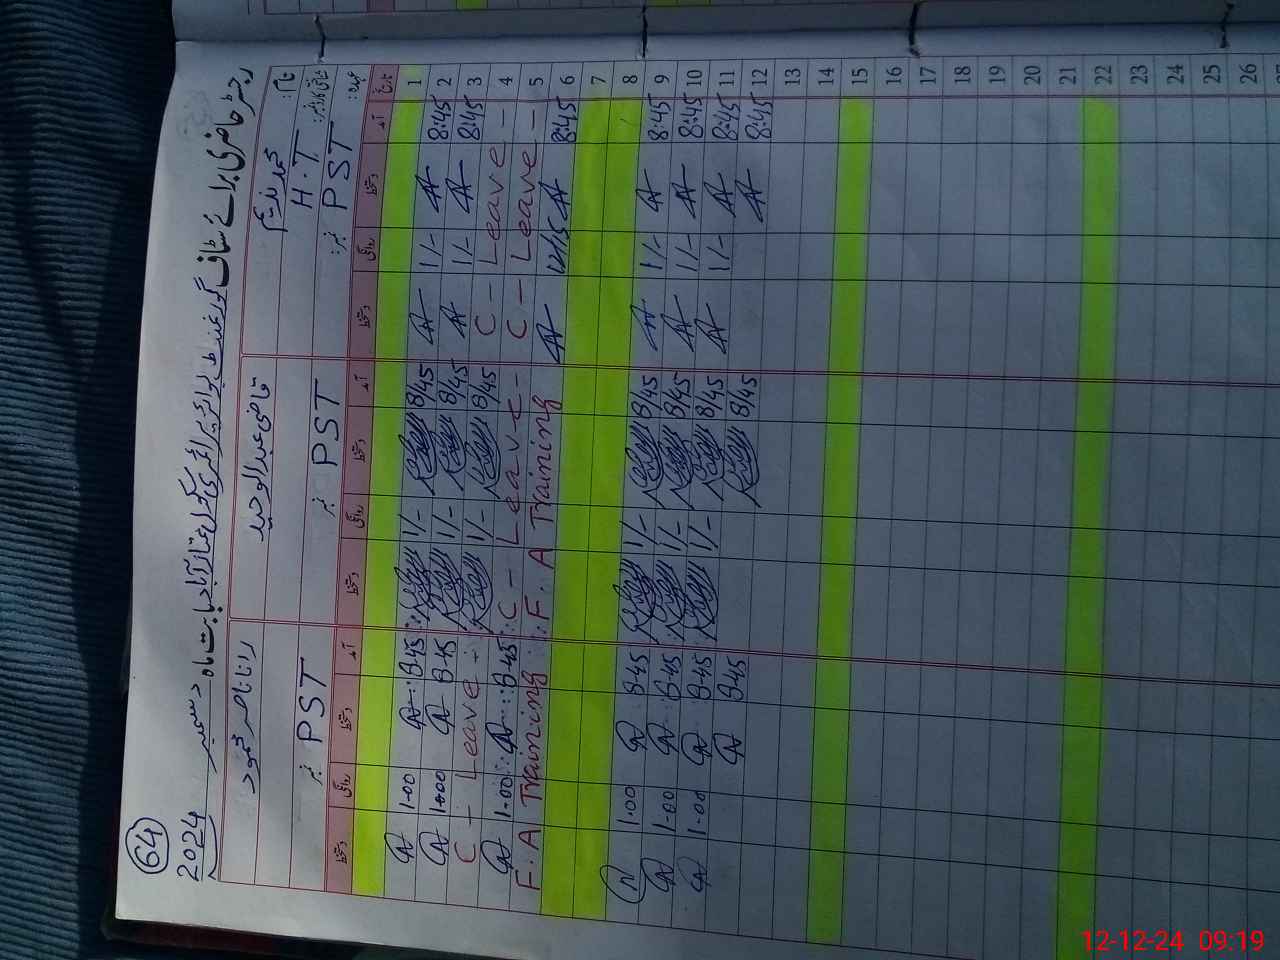 64
رجسٹر حاضری برائے سٹاف گورنمنٹ بوائز پرائمری سکول ممتاز آباد بابت ماہ دسمبر
2024
نام: محمد ندیم قاضی عبدالوحید رانا ناصر محمود
H.T
عہدہ: PST PST PST
تاریخ آمد دستخط روانگی دستخط آمد دستخط روانگی دستخط آمد دستخط روانگی دستخط
1
2 8:45 1/- 8/45 1/- 8:45 1-00
3 8:45 1/- 8/45 1/- 8:45 1-00
4 C - Leave - 8/45 1/- C - Leave -
5 C - Leave - C - Leave - 8:45 1-00
6 8:45 12/15 F. A Training F. A Training
7
8
9 8:45 1/- 8/45 1/- 8:45 1-00
10 8:45 1/- 8/45 1/- 8:45 1-00
11 8:45 1/- 8/45 1/- 8:45 1-00
12 8:45 8/45 8:45
13
14
15
16
17
18
19
20
21
22
23
24
25
26
12-12-24 09:19